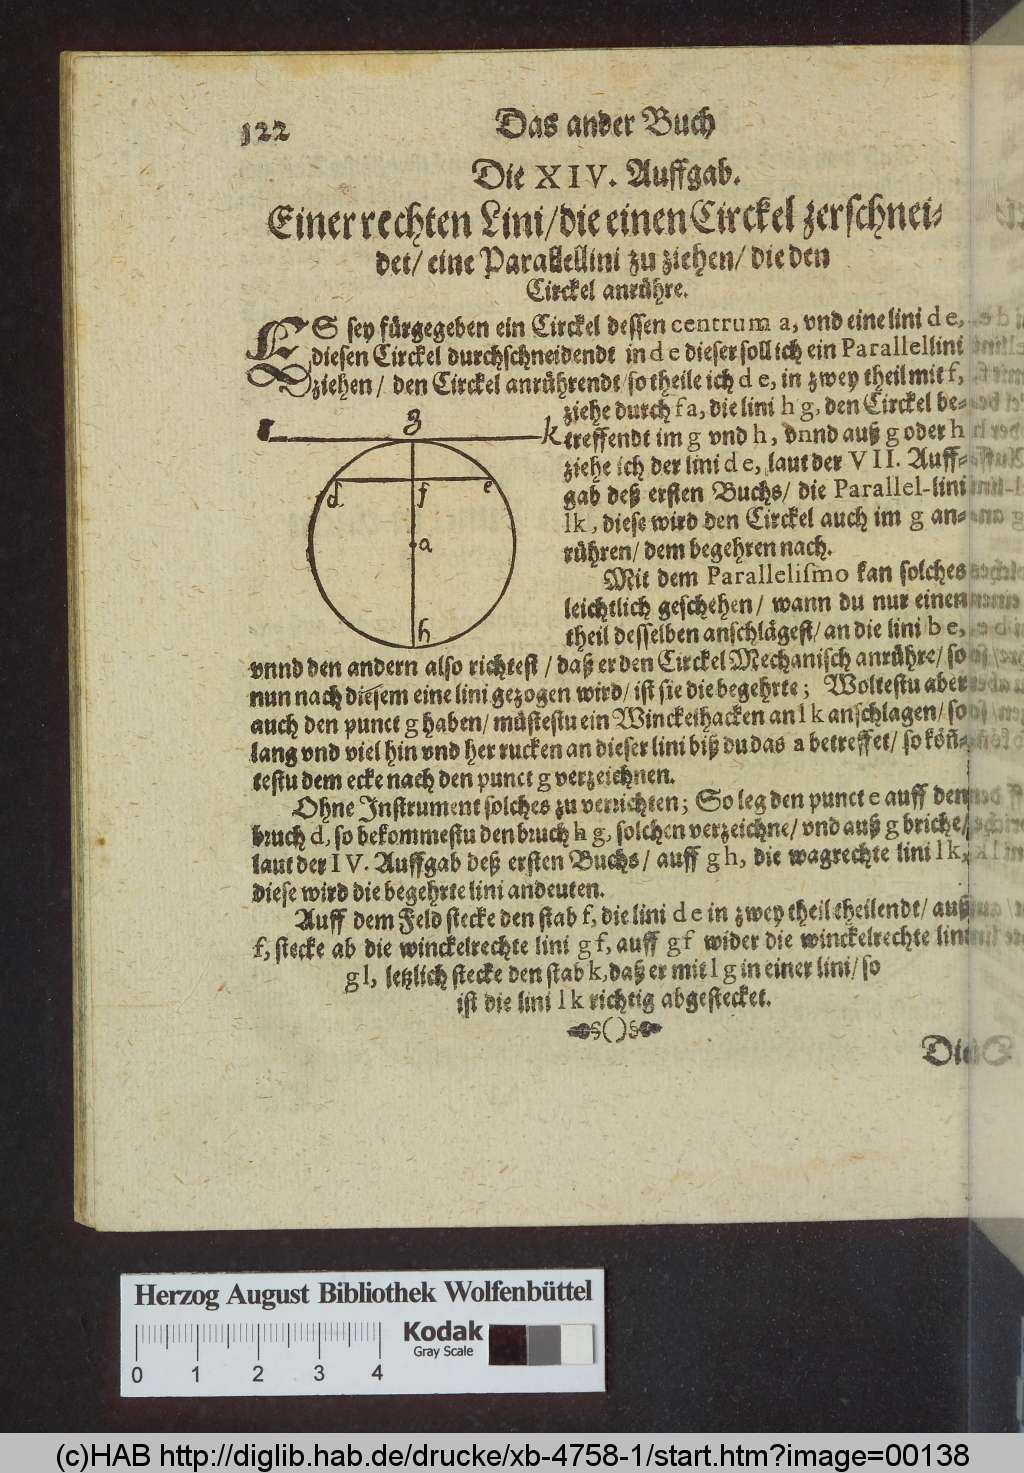 122
Das ander Buch
Die XIV. Auffgab.
Einer rechten Lini/ die einen Circkel zerschnei-
det/ eine Parallellini zu ziehen/ die den
Circkel anrühre.
ES sey fürgegeben ein Circkel dessen centrum a, vnd eine lini d e,
diesen Circkel durchschneidendt in d e dieser soll ich ein Parallellini
ziehen/ den Circkel anrührendt/ so theile ich d e, in zwey theil mit f,
ziehe durch f a, die lini h g, den Circkel be-
treffendt im g vnd h, vnnd auß g oder h
ziehe ich der lini d e, laut der VII. Auff-
gab deß ersten Buchs/ die Parallel-lini
lk, diese wird den Circkel auch im g an-
rühren/ dem begehren nach.
g
k
d
f
e
a
h
Mit dem Parallelismo kan solches
leichtlich geschehen/ wann du nur einen
theil desselben anschlägest/ an die lini b e,
vnnd den andern also richtest/ daß er den Circkel Mechanisch anrühre/ so
nun nach diesem eine lini gezogen wird/ ist sie die begehrte; Woltestu aber
auch den punct g haben/ müstestu ein Winckelhacken an l k anschlagen/ so
lang vnd viel hin vnd her rucken an dieser lini biß du das a betreffet/ so kön̄-
testu dem ecke nach den punct g verzeichnen.
Ohne Instrument solches zu verrichten; So leg den punct e auff den
bruch d, so bekommestu den bruch h g, solchen verzeichne/ vnd auß g briche/
laut der IV. Auffgab deß ersten Buchs/ auff g h, die wagrechte lini l k,
diese wird die begehrte lini andeuten.
Auff dem Feld stecke den stab f, die lini d e in zwey theil theilendt/ auß
f, stecke ab die winckelrechte lini g f, auff g f wider die winckelrechte lini
g l, letzlich stecke den stab k, daß er mit l g in einer lini/ so
ist die lini l k richtig abgestecket.
Die
Herzog August Bibliothek Wolfenbüttel
Kodak
Gray Scale
0 1 2 3 4
(c)HAB http://diglib.hab.de/drucke/xb-4758-1/start.htm?image=00138